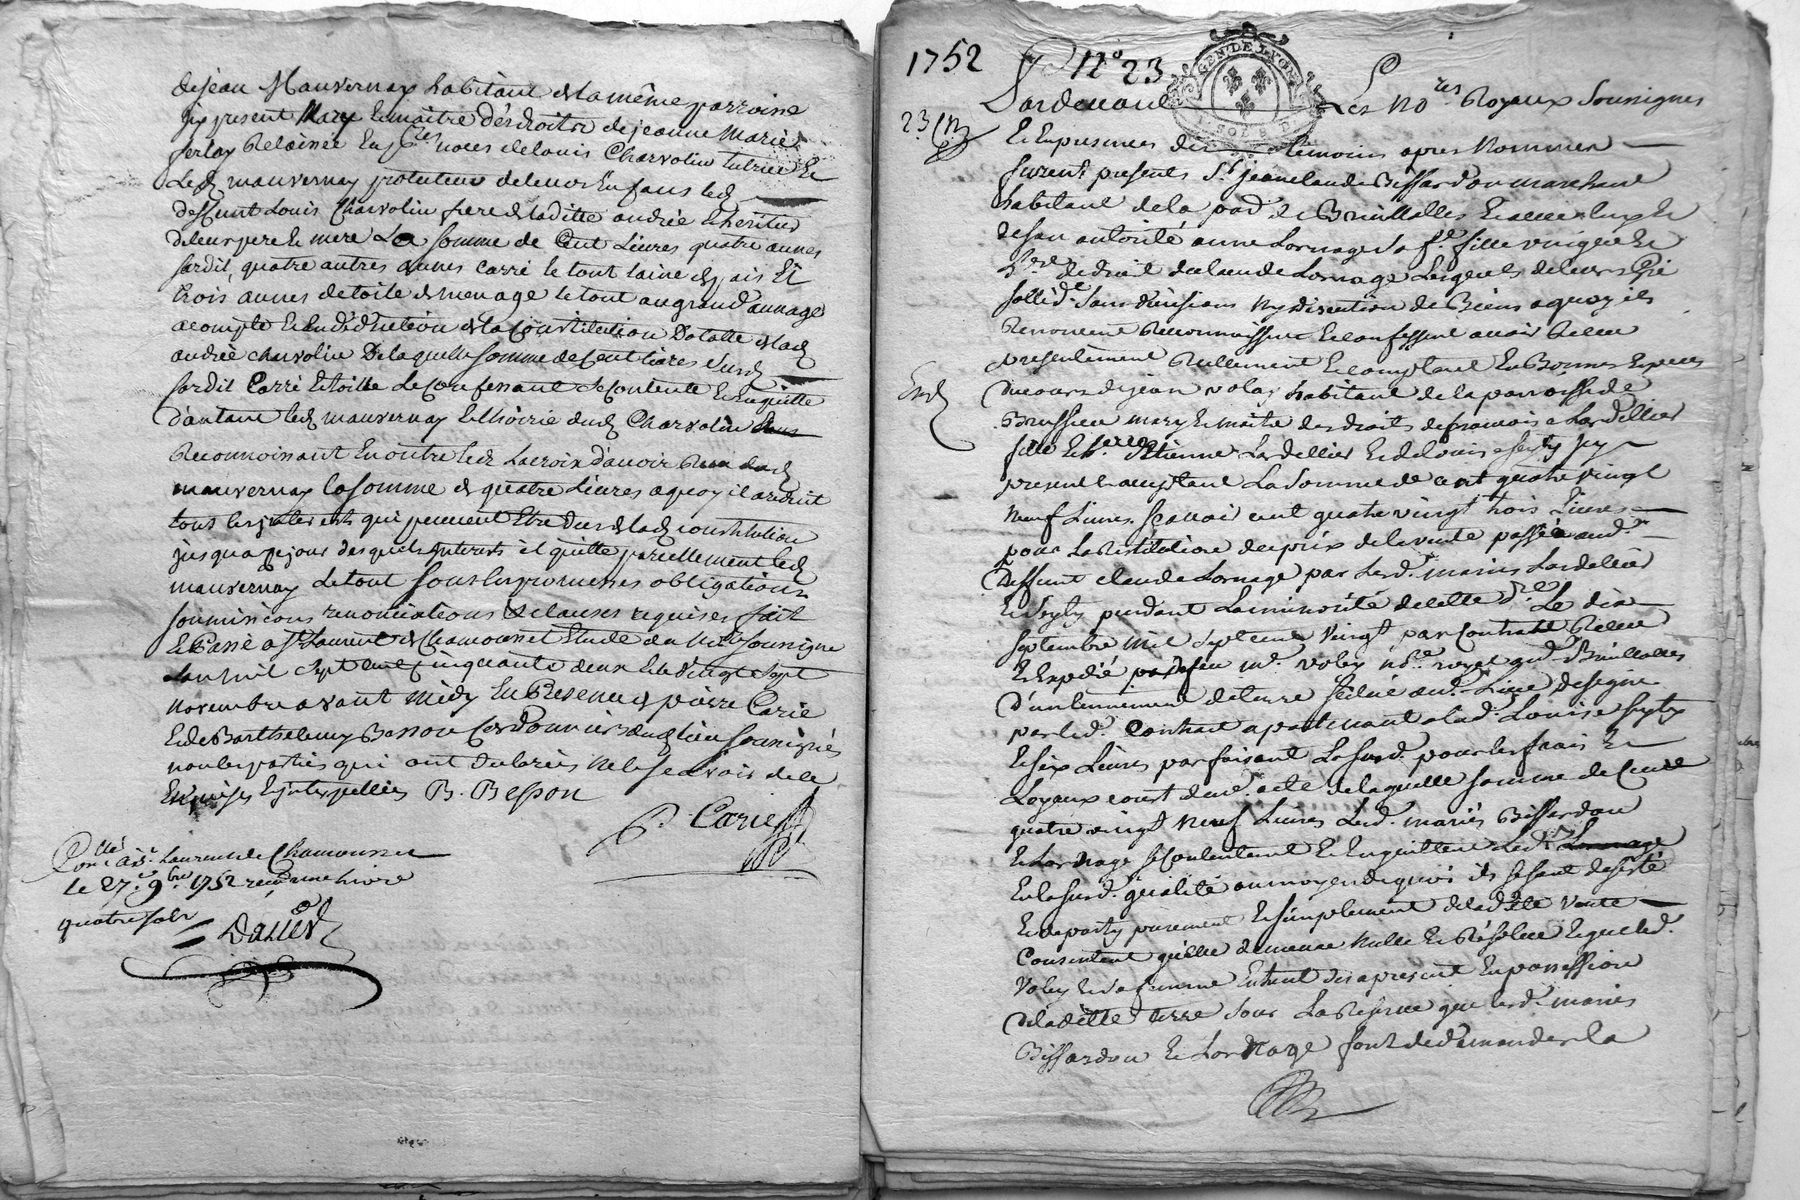 de jean Mauvernay habitant de la même parroisse
icy present Mary et maitre des droits de jeanne Marie
ferlay Relaissée en noces de louis Charvolin tutrice et
Led mauvernay protuteur de leurs Enfans led
deffunt Louis Charvolin frere de laditte andrée et heritier
de leurs pere et mere La somme de Cent Livres quatre aunes
sardit, quatre autres aunes carré le tout laine du païs Et
trois aunes de toile de menage le tout au grand aunage
acompte et en deduction de la Constitution Dotalle de lad
andrée charvolin De laquelle somme de Cent livres susd
sardit Carré et toille Le Confessant se Contente et en quitte
d'autant led mauvernay et l'hoirie dud Charvolin
Reconnoissant En outre led Lacroix d'avoir Reçu dud
mauvernay la somme de quatre Livres a quoy
tous les interets qui peuvent Etre dus de lad constitution
jusqu'a ce jour desquels Interets il quitte pareillement led
mauvernay Le tout sous les promesses obligations
soumissions renonciations et clauses requises fait
et Passé a St Laurent de Chamousset Etude du no.re soussigné
Lan mil sept cent cinquante deux et le vingt sept
novembre avant midy En Presence de pierre Carie
et de Barthelemy Besson Cordonnier dud lieu soussignés
non les parties qui ont declarées ne le sçavoir de ce
Enquises et interpellées B. Besson
P. Carie
Con.llé a St Laurent de Chamousset
le 27.e 9.bre 1752 reçu une livre
quatre sols
Dallier
1752 N° 23
GEN. DE LYON
Pardevant Les No.res Royaux Soussignés
23
Et En presences des temoins apres Nommes
furent presents S.r jean claude Bissardon marchand
habitant de la par.d de Brullioles Et avec luy et
de son autorité anne Lornage sa f.e fille unique Et
de droit de claude Lornage Lesquels de leurs gré
sollid.t sans division ny discution de Biens a quoy ils
Renoncent Reconnoissent et confessent avoir Receu
presentement Reellement Et comptant En Bonnes Especes
du cours de jean voley habitant de la parroisse de
Brussieu mary et maitre des droits de francoise Lardellier
fille et h.re d'Etienne Lardellier et de Louise Seyty icy
present Et acceptant La Somme de cent quatre vingt
Neuf Livres. sçavoir cent quatre vingt trois Livres
pour La Restitution du prix de la vente passée aud.
Deffunt claude Lornage par lesd. mariés Lardellier
Et Seyty pendant La minorité de cette Le dix
Septembre mil Sept cent vingt par Contrat Receu
Et Expedié par feu m.e voley n.re royal aud. Brullioles
d'un tennement de terre situé aud. Lieu Designé
par led. Contrat apartenant a lad. Louise Seyty
Et six Livres parfaisant La susd. pour les frais Et
Loyaux coust dud. acte de laquelle somme de Cent
quatre vingt Neuf Livres Lesd. mariés Bissardon
Et Lornage se Contentent Et En quittent led.
En la susd. qualité au moyen de quoi ils se sont desisté
Et departy purement Et simplement de laditte vente
Consentent qu'elle demeure Nulle Et Résolue Et que led.
Voley Et sa femme Entrent dès a present En possession
de laditte terre sous La Reserve que lesd. mariés
Bissardon Et Lornage font de demander la